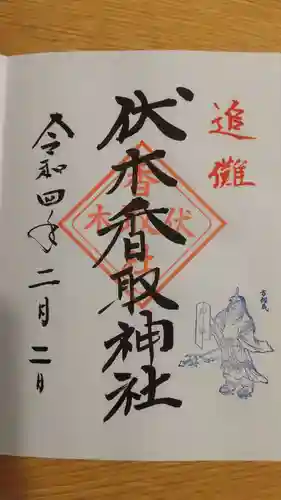 追儺
伏木香取神社
令和四年二月二日
伏木
香取
社
方相氏